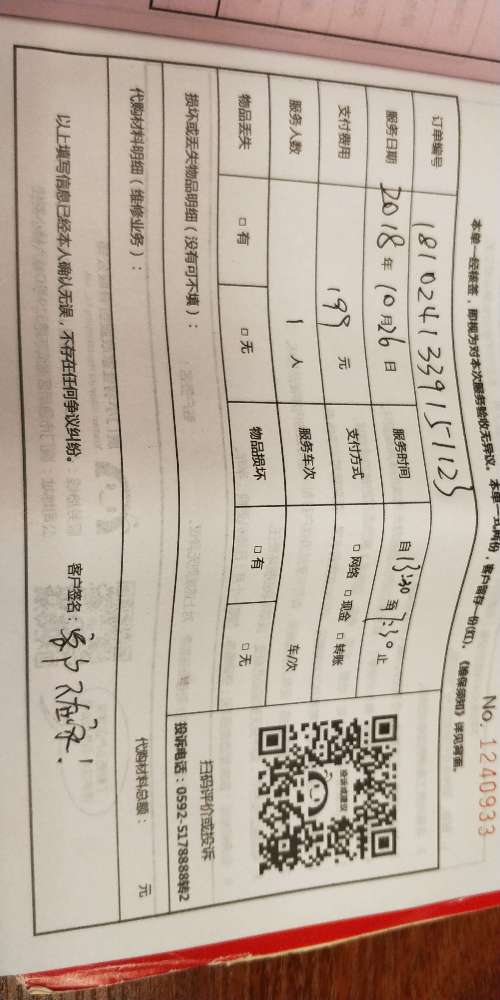 No. 1240933
本单一经核签，即视为对本次服务验收无异议。本单一式两份，客户留存一份(红)。《维保须知》详见背面。
订单编号 181024133915112
服务日期 2018 年 10 月 26 日 服务时间 自 13:30 至 7:30 止
支付费用 199 元 支付方式 □ 网络 □ 现金 □ 转账
服务人数 1 人 服务车次 车/次
物品丢失 □ 有 □ 无 物品损坏 □ 有 □ 无
投诉或建议
扫码评价或投诉
投诉电话：0592-5178888转2
损坏或丢失物品明细（没有可不填）：
代购材料明细（维修业务）： 代购材料总额： 元
以上填写信息已经本人确认无误，不存在任何争议纠纷。 客户签名：客户不在家！